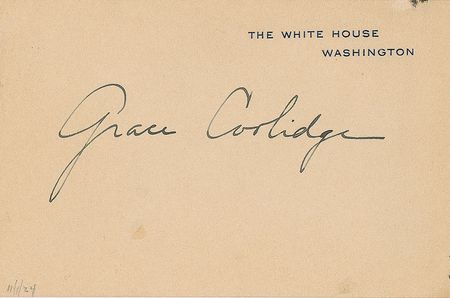 THE WHITE HOUSE
WASHINGTON
Grace Coolidge
11/1/24